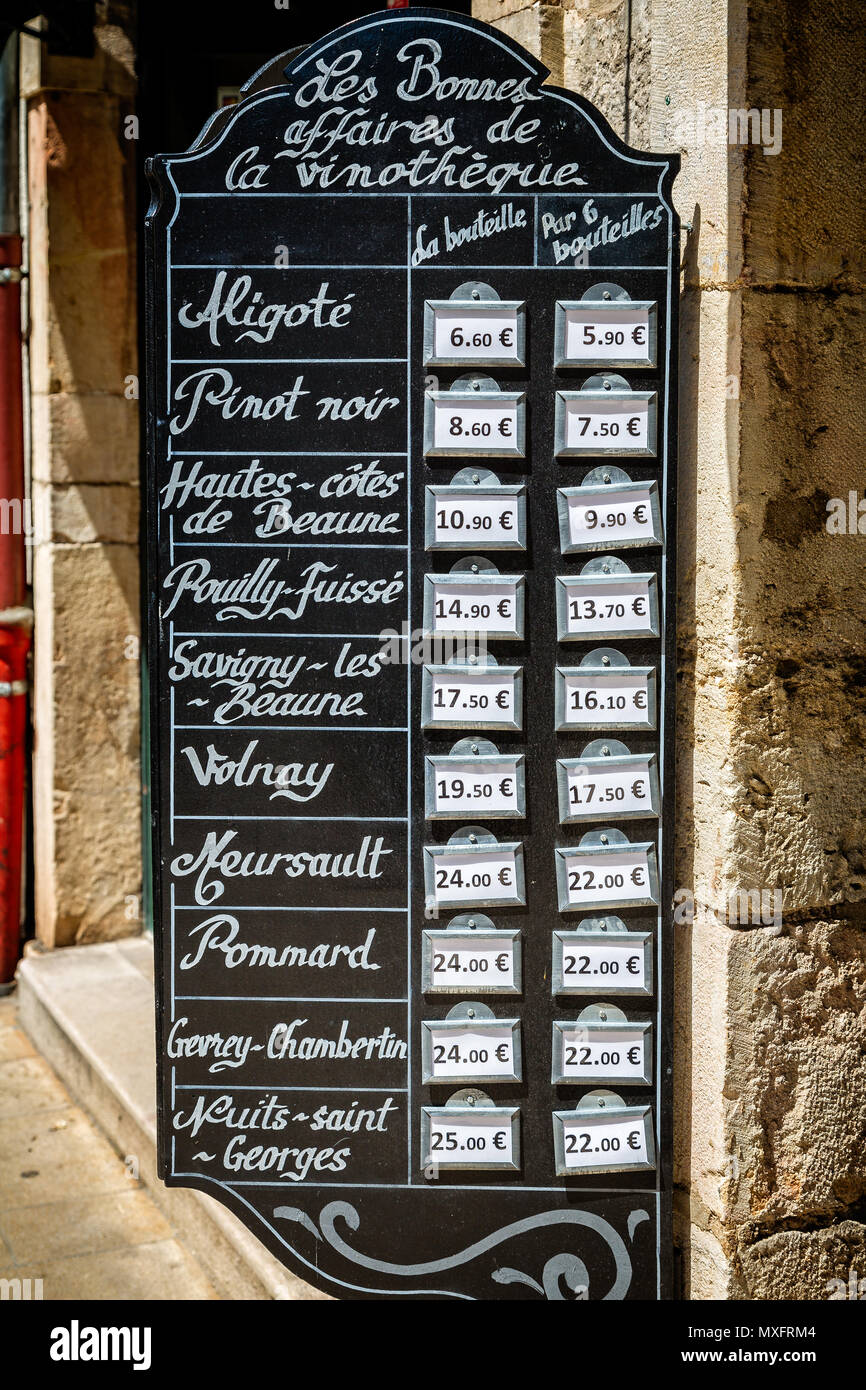 Les Bonnes
affaires de
la vinothèque
La bouteille
Par 6
bouteilles
Aligoté 6.60 € 5.90 €
Pinot noir 8.60 € 7.50 €
Hautes-côtes
de Beaune 10.90 € 9.90 €
Pouilly-Fuissé 14.90 € 13.70 €
Savigny-les
-Beaune 17.50 € 16.10 €
Volnay 19.50 € 17.50 €
Meursault 24.00 € 22.00 €
Pommard 24.00 € 22.00 €
Gevrey-Chambertin 24.00 € 22.00 €
Nuits-saint
-Georges 25.00 € 22.00 €
alamy
Image ID: MXFRM4
www.alamy.com